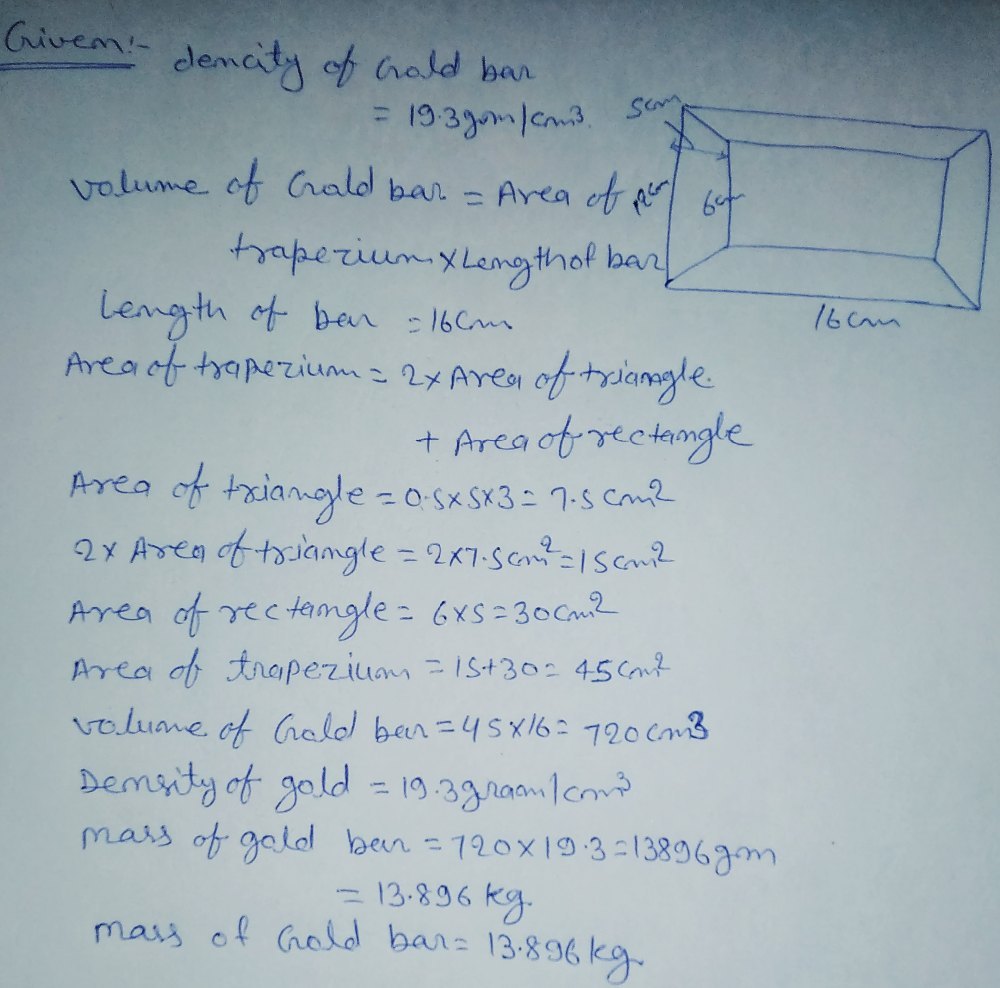 Given:-
dencity of Gold bar
= 19.3gm/cm3.
5cm
volume of Gold bar = Area of
12cm
6cm
trapezium x Length of bar
Length of bar = 16cm
16cm
Area of trapezium = 2x Area of triangle.
+ Area of rectangle
Area of triangle = 0.5x5x3 = 7.5 cm2
2x Area of triangle = 2x7.5cm2 = 15cm2
Area of rectangle = 6x5 = 30cm2
Area of trapezium = 15+30 = 45cm2
volume of Gold bar = 45x16 = 720cm3
Density of gold = 19.3gram/cm3
mass of gold bar = 720x19.3 = 13896gm
= 13.896 kg.
mass of Gold bar = 13.896kg.